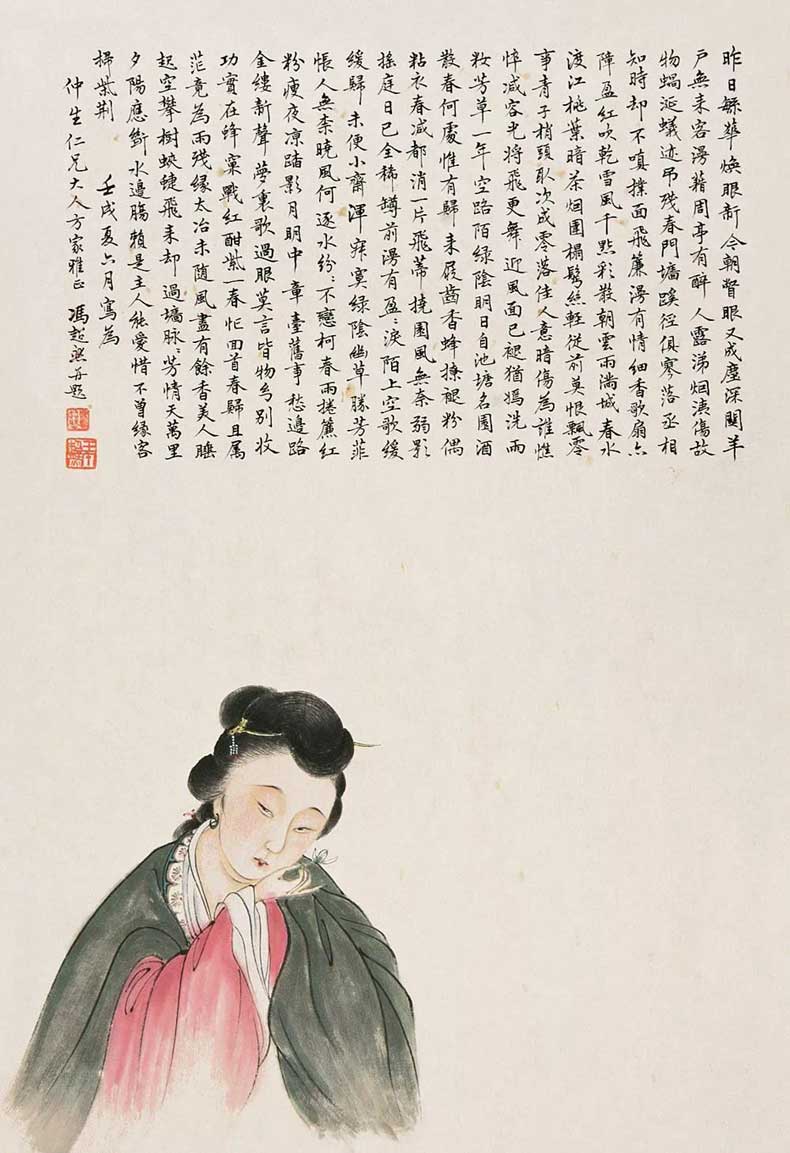 昨日繁華煥眼新今朝瞥眼又成塵深關羊
戶無来客漫藉周亭有醉人露涕烟洟傷故
物蝸涎蟻迹吊殘春門墻蹊徑俱寥落丞相
知時却不嗔撲面飛簾漫有情細香歌扇
障盈紅吹乾雪風千點彩散朝雲雨滿城春水
渡江桃葉暗茶烟圍榻鬢絲輕從前莫恨飄零
事青子梢頭取次成零落佳人意暗傷為誰憔
悴減容光將飛更舞迎風面已褪猶嫣洗雨
妝芳草一年空路陌綠陰明日自池塘名園酒
散春何處惟有歸来屐齒香蜂撩褪粉偶
粘衣春減都消一片飛蒂撓園風無奈弱影
搖庭日已全稀罇前漫有盈〻淚陌上空歌緩
緩歸未便小齋渾寂寞綠陰幽草勝芳菲
悵人無奈曉風何逐水紛〻不戀柯春雨捲簾紅
粉瘦夜凉踏影月明中章臺舊事愁邊路
金縷新聲夢裏歌過眼莫言皆物幻別收
功實在蜂窠戰紅酣紫一春忙回首春歸且属
茫竟為雨殘緣太冶未随風盡有餘香美人睡
起空攀樹蛺蝶飛来却過墻脉〻芳情天萬里
夕陽應斷水邊腸賴是主人能愛惜不曾緣客
掃紫荊 壬戌夏六月寫為
仲生仁兄大人方家雅正 馮超然并題